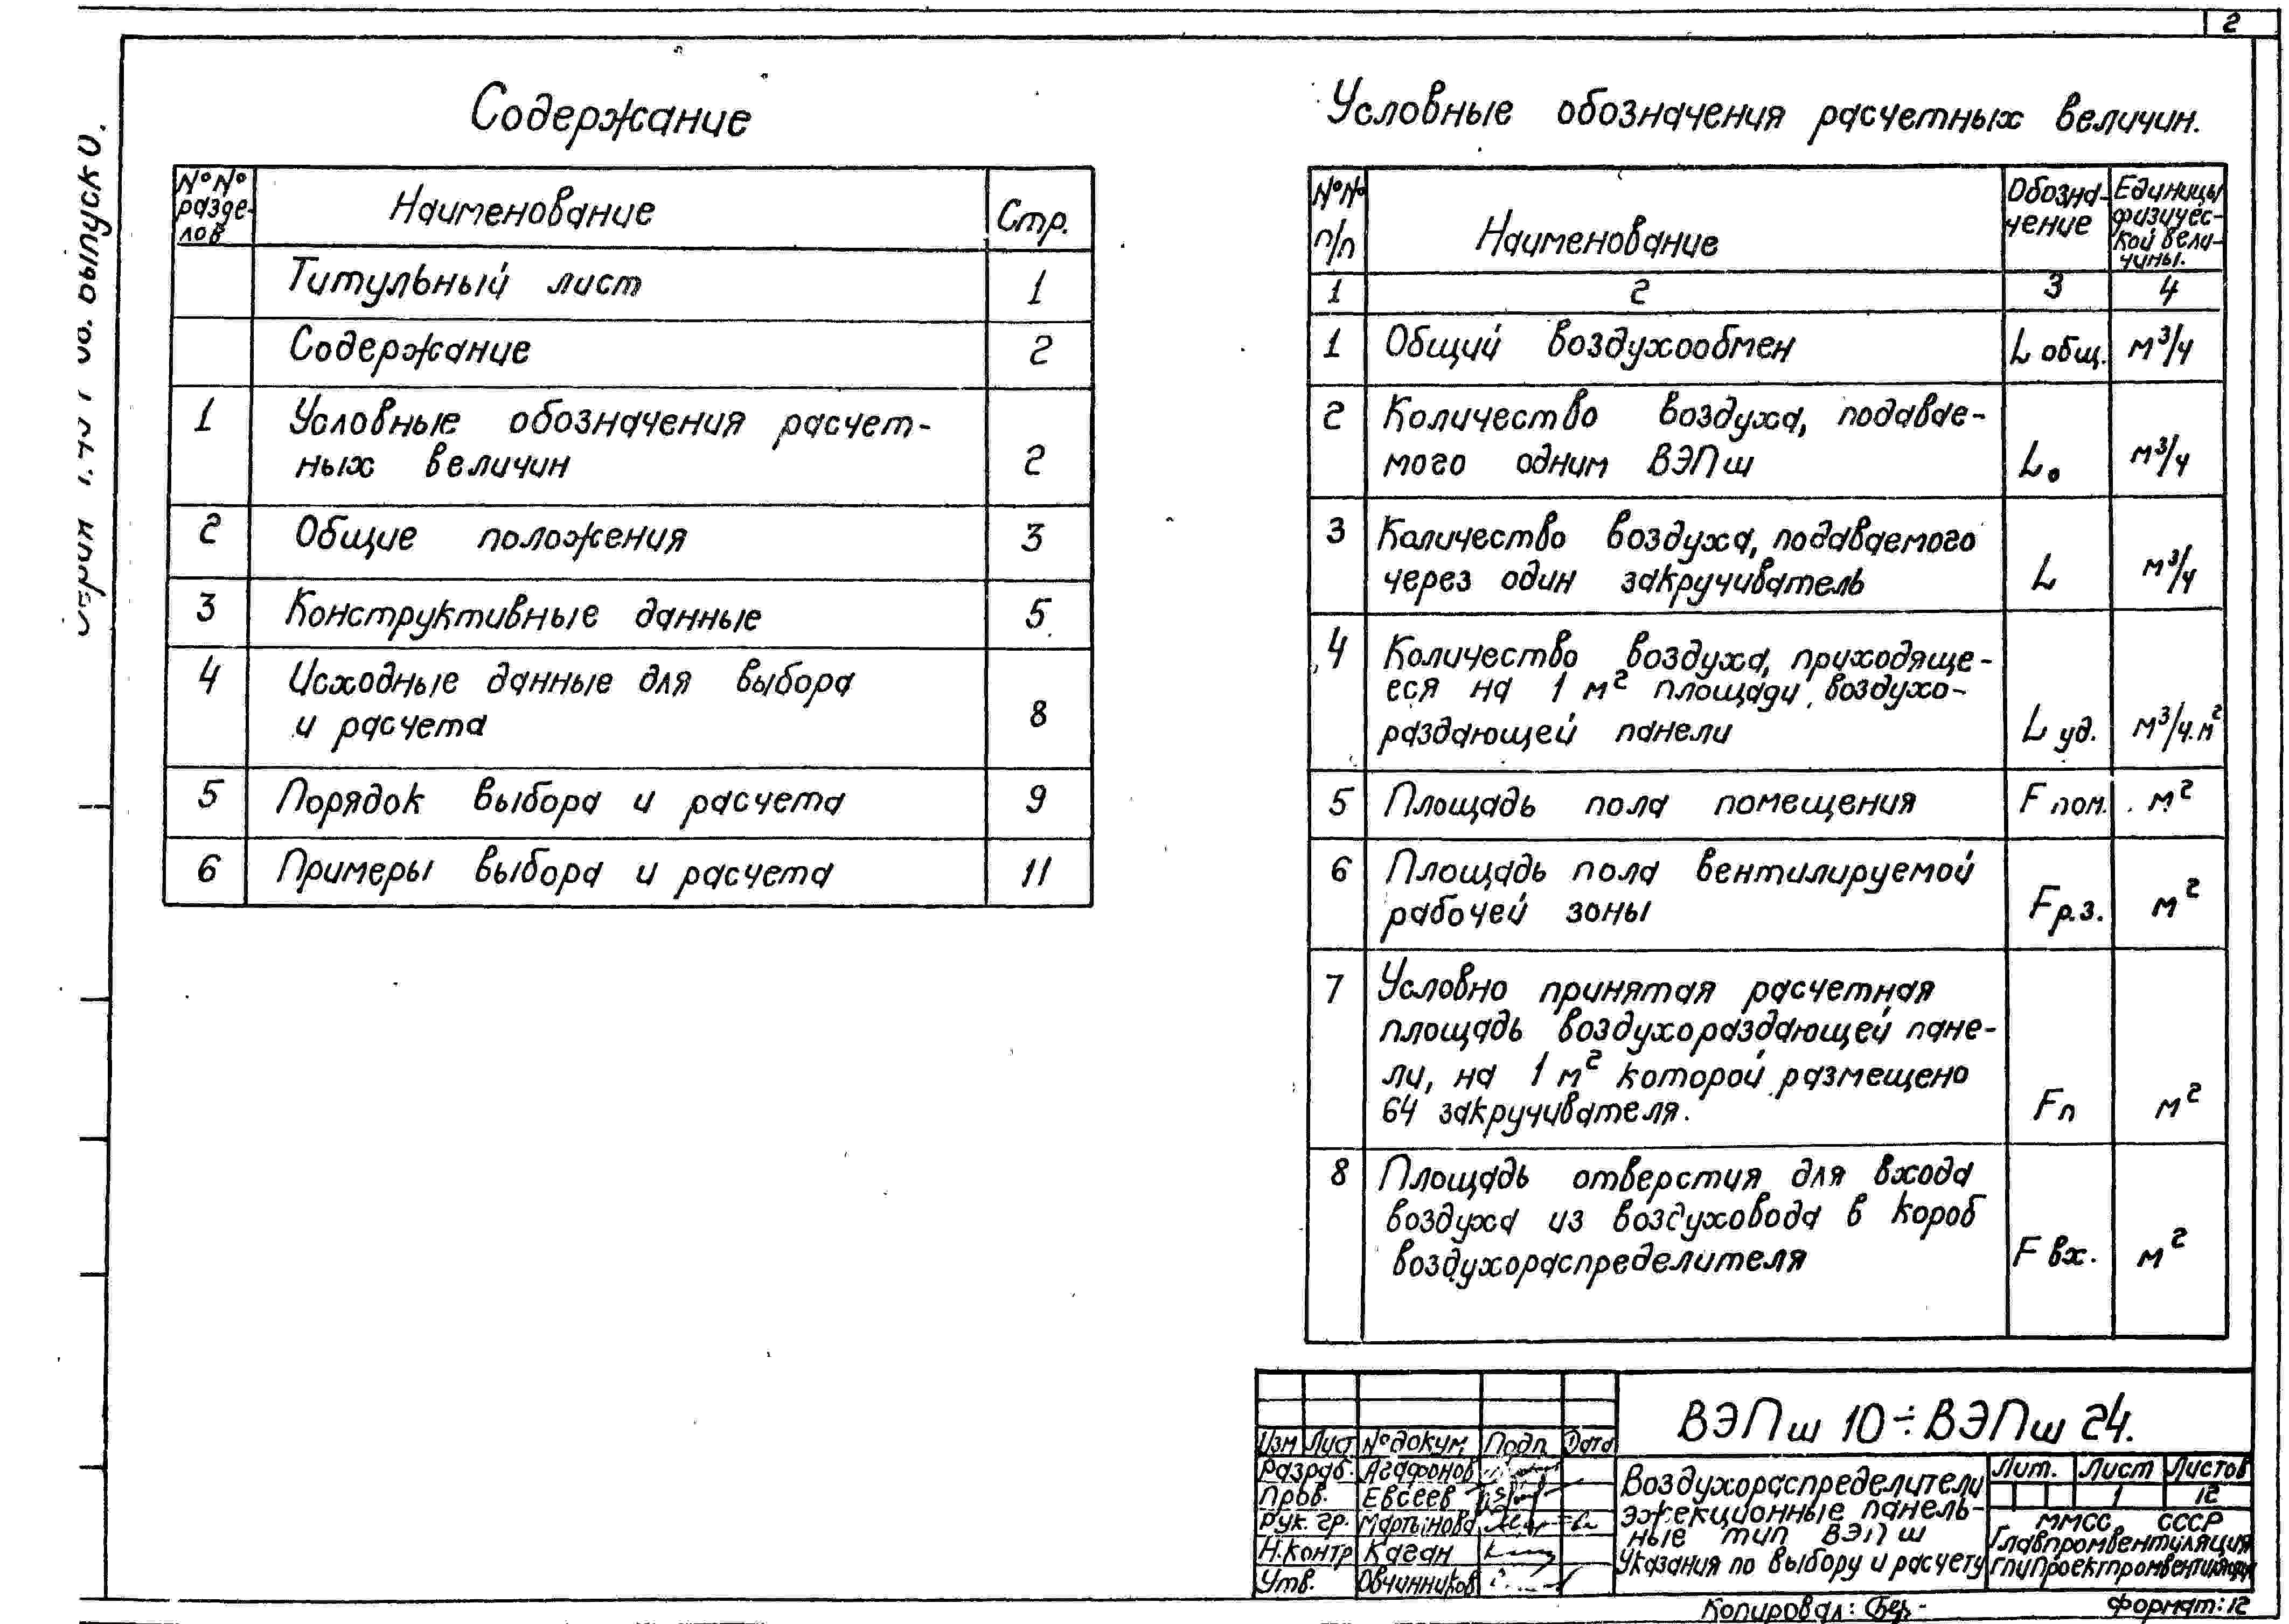 2
выпуск 0.
Содержание
№№ разде-
лов
Наименование
Стр.
Титульный лист 1
Содержание 2
1 Условные обозначения расчет-
ных величин 2
2 Общие положения 3
3 Конструктивные данные 5
4 Исходные данные для выбора
и расчета 8
5 Порядок выбора и расчета 9
6 Примеры выбора и расчета 11
Условные обозначения расчетных величин.
№№
п/п
Наименование
Обозна-
чение
Единицы
физичес-
кой вели-
чины.
1 2 3 4
1 Общий воздухообмен L общ. м³/ч
2 Количество воздуха, подавае-
мого одним ВЭПш L₀ м³/ч
3 Количество воздуха, подаваемого
через один закручиватель L м³/ч
4 Количество воздуха, приходяще-
еся на 1 м² площади воздухо-
раздающей панели L уд. м³/ч.м²
5 Площадь пола помещения F пом. м²
6 Площадь пола вентилируемой
рабочей зоны F р.з. м²
7 Условно принятая расчетная
площадь воздухораздающей пане-
ли, на 1 м² которой размещено
64 закручивателя. Fп м²
8 Площадь отверстия для входа
воздуха из воздуховода в короб
воздухораспределителя F вх. м²
ВЭПш 10÷ВЭПш 24.
Изм Лист № докум. Подп. Дата
Разраб. Агафонов
Пров. Евсеев
Рук. гр. Мартынова
Н.контр Каган
Утв. Овчинников
Воздухораспределители
эжекционные панель-
ные тип ВЭПш
Указания по выбору и расчету
Лит. Лист Листов
1 12
ММСС СССР
Главпромвентиляция
ГПИ Проектпромвентиляция
Копировал:
Формат: 12